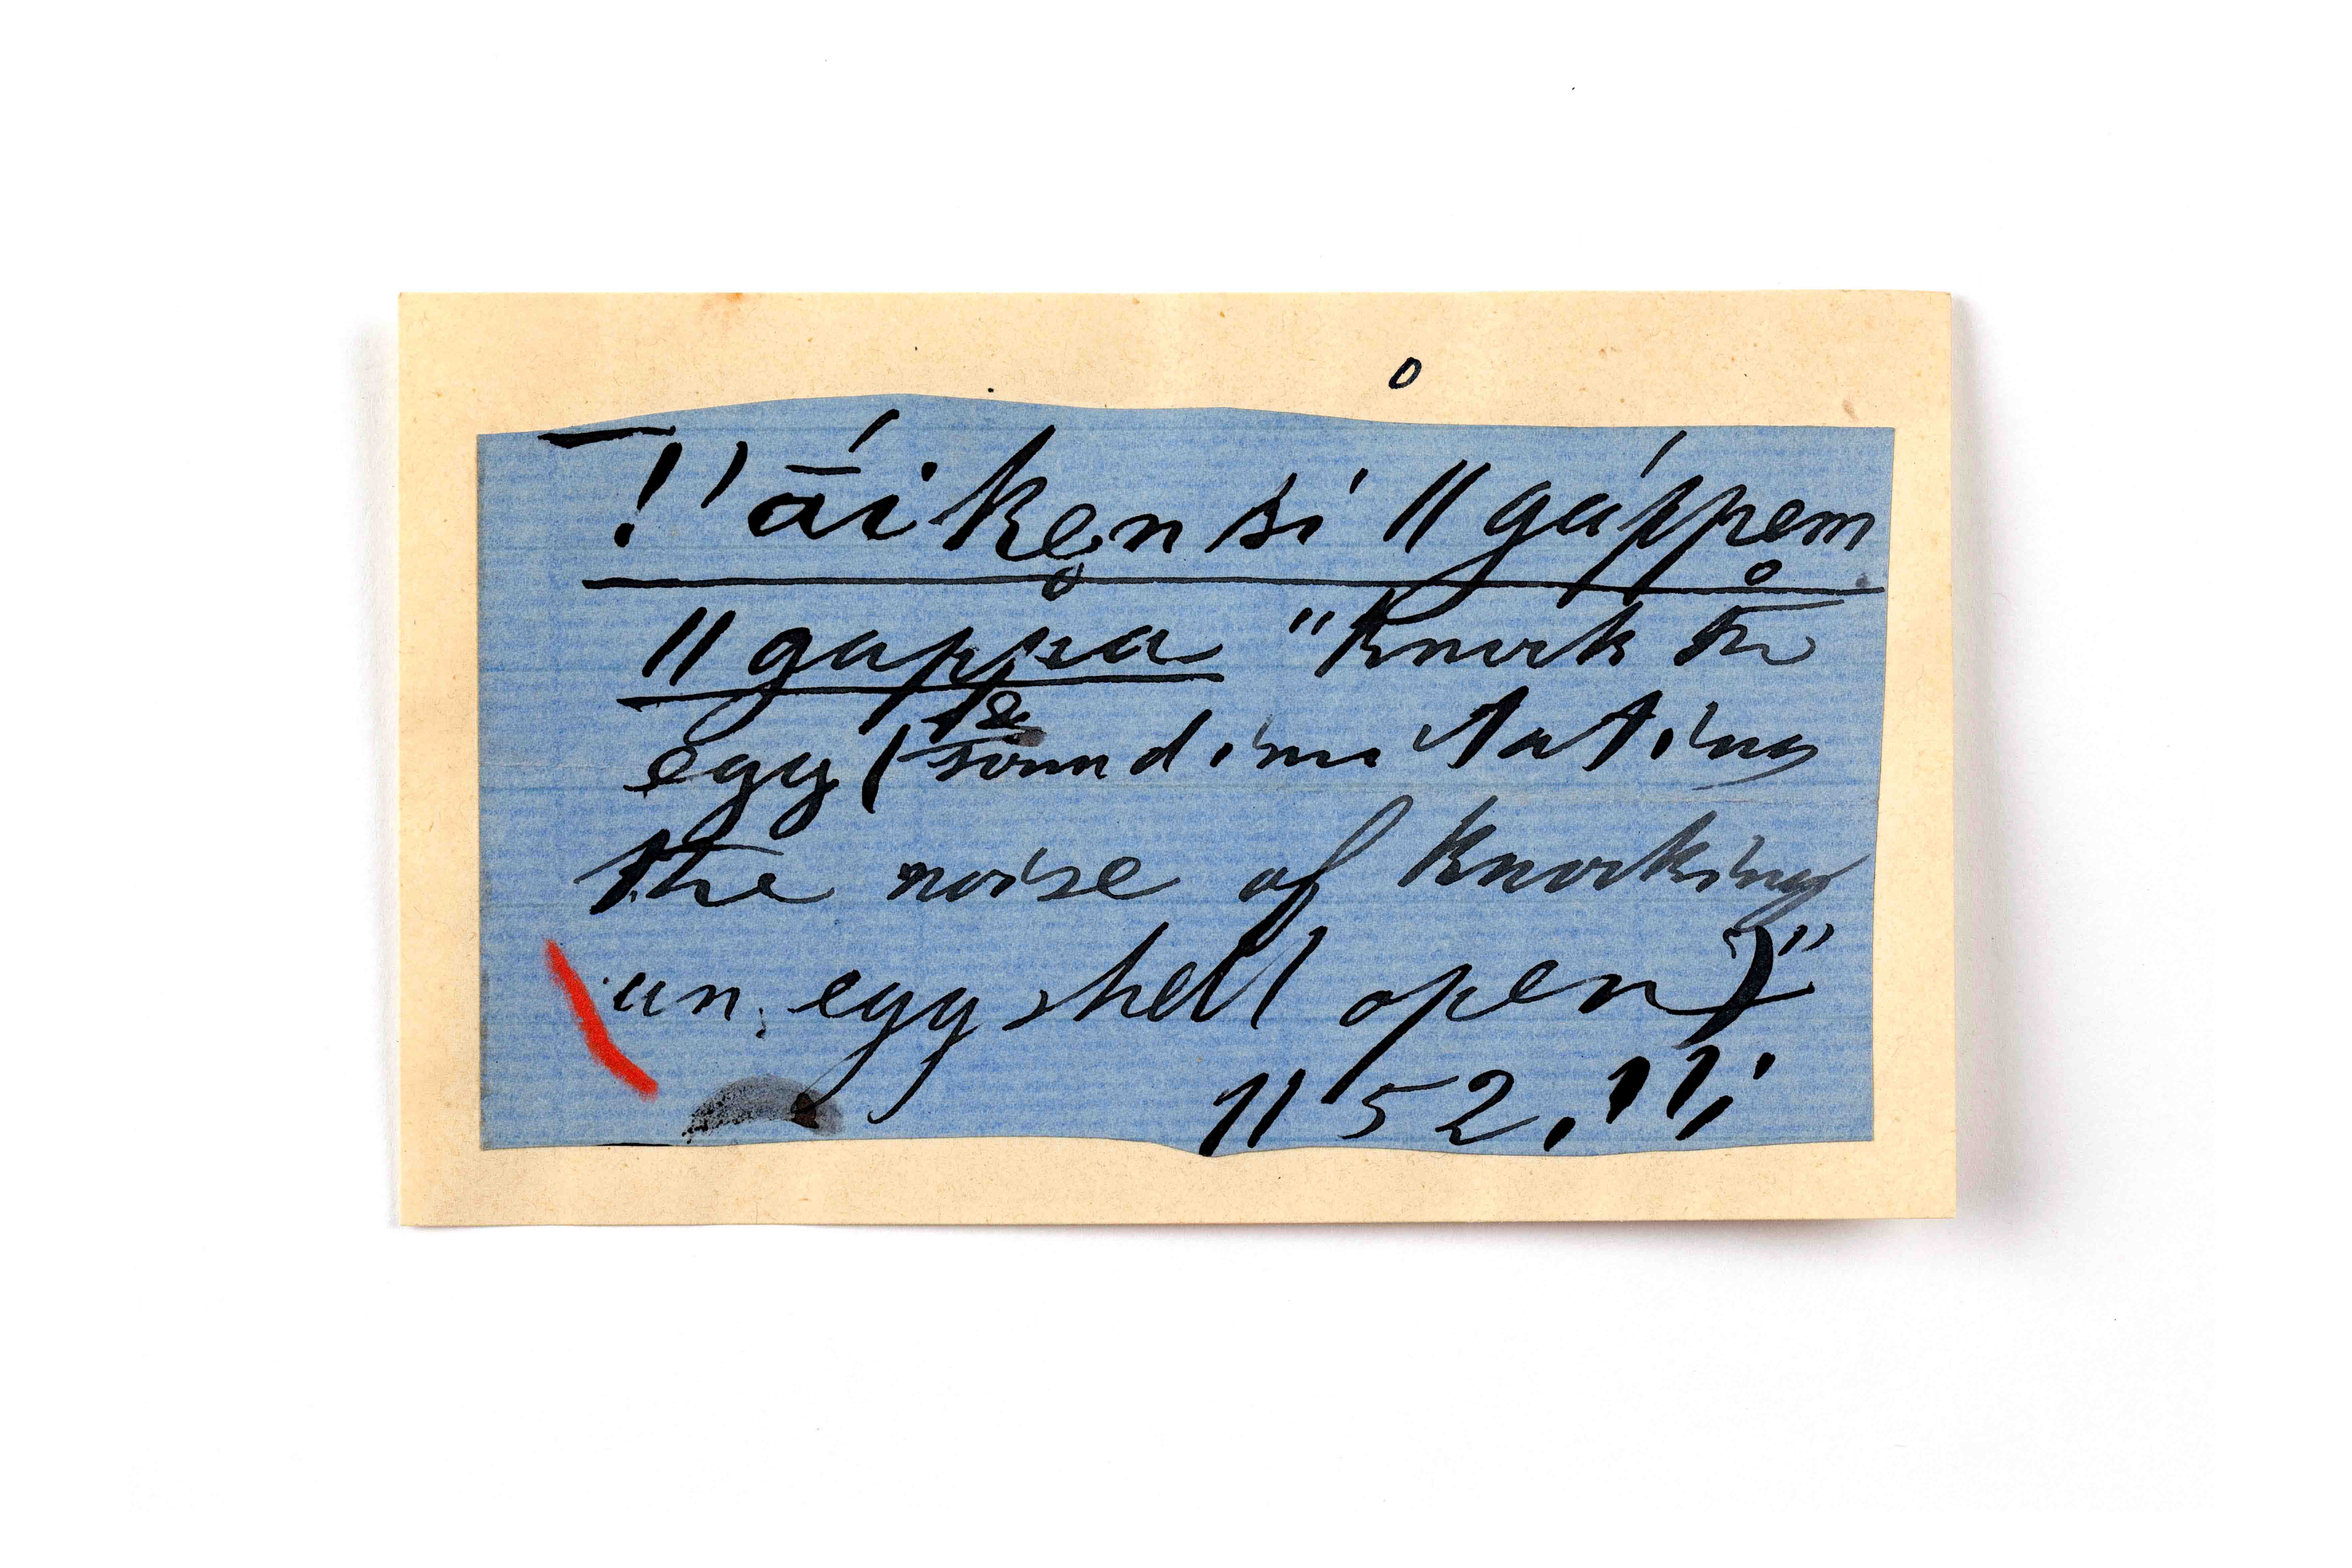 !'ā́iken si ǁgáppem
ǁgappa "knock the
egg (sound imitating
the noise of knocking
an egg shell open)"
1152.